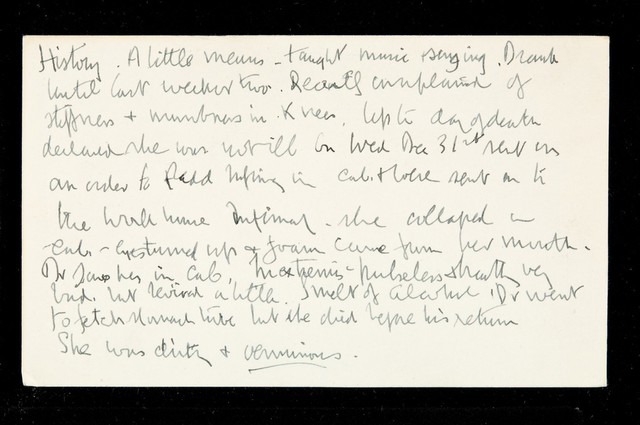 History. A little means - taught music & singing. Drank
until last week or two. Recently complained of
stiffness & numbness in knees. Up to day of death
declared she was not ill. On Wed Dec 31st sent in
an order to Padd Infirm in cab & were sent on to
the Work house Infirmary. She collapsed in
cab - eyes turned up & foam came from her mouth.
Dr saw her in cab, In extremis - pulseless & breathing very
bad, but revived a little. Smelt of alcohol. Dr went
to fetch stomach tube but she died before his return
She was dirty & verminous.